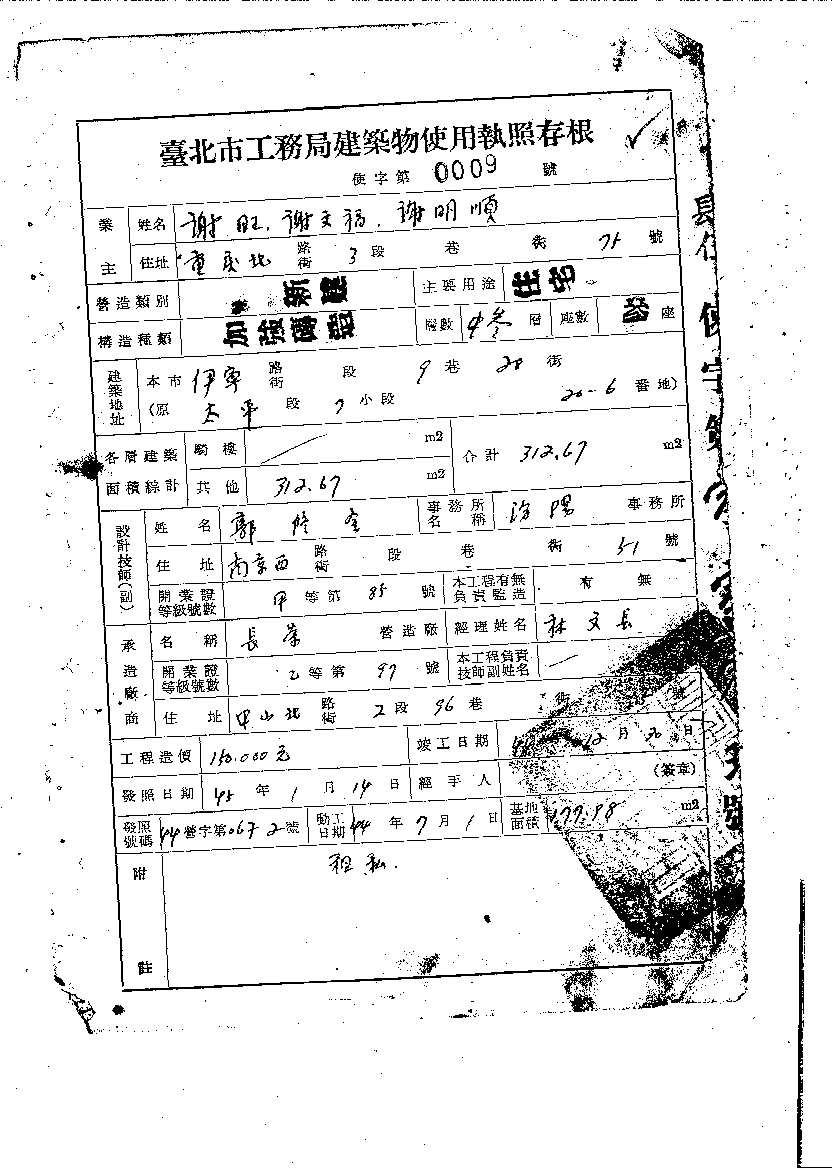 臺北市工務局建築物使用執照存根
使字第 0009 號
業主 姓名 謝旺、謝文福、謝明順
住址 重慶北 路街 3 段 巷 街 75 號
營造類別 新建 主要用途 住宅
構造種類 加強磚造 層數 叁 層 座數 座
建築地址 本市 伊寧 路街 段 9 巷 20 街
(原 太平 段 7 小段 20-6 番地)
各層建築面積綜計 騎樓 m2 合計 312.67 m2
其他 312.67 m2
設計技師(副) 姓名 郭 事務所名稱 事務所
住址 南京西 路街 段 巷 街 51 號
開業證等級號數 甲 等第 85 號 本工程有無負責監造 有 無
承造廠商 名稱 長榮 營造廠 經理姓名 林文長
開業證等級號數 乙 等第 97 號 本工程負責技師副姓名
住址 中山北 路街 2 段 96 巷 街 號
工程造價 150.000元 竣工日期 12 月 30 日
發照日期 45 年 1 月 14 日 經手人 (簽章)
發照號碼 44 營字第 0672 號 動工日期 44 年 7 月 1 日 基地面積 177.98 m2
附註